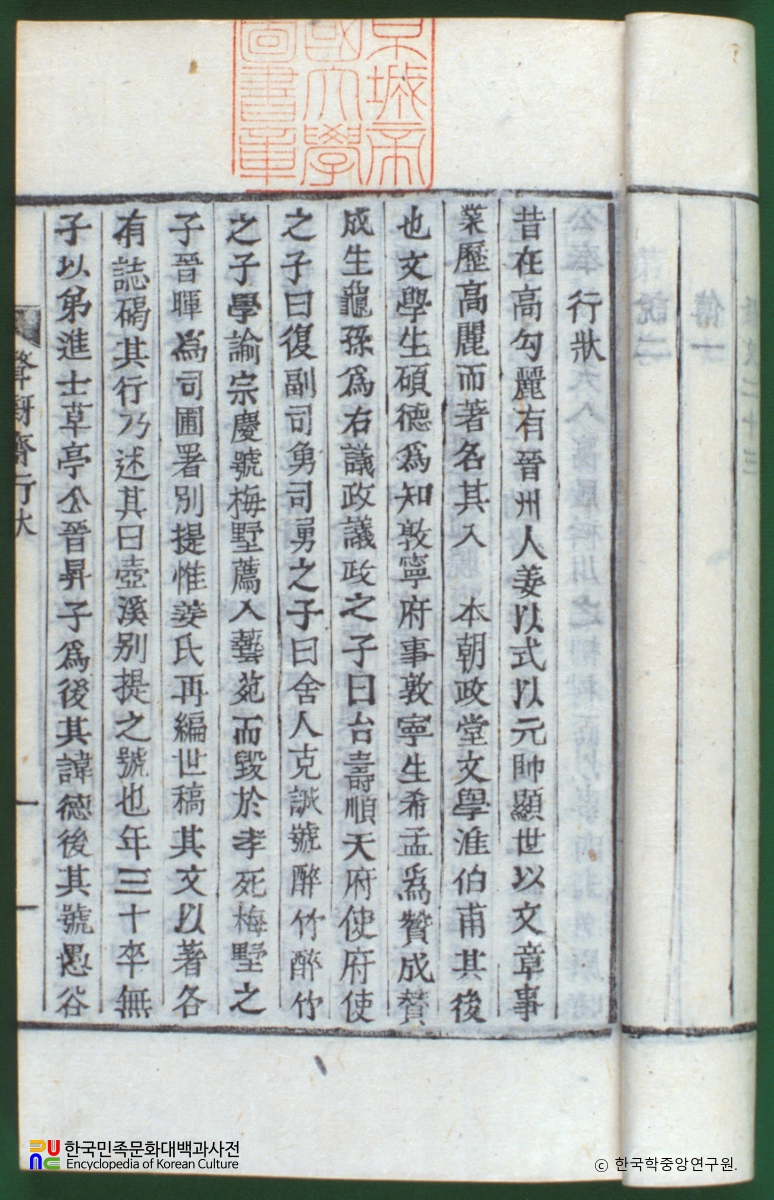 京城帝
國大學
圖書章
行狀
昔在高勾麗有晉州人姜以式以元帥顯世以文章事
業歷高麗而著名其入 本朝政堂文學淮伯甫其後
也文學生碩德爲知敦寧府事敦寧生希孟爲贊成贊
成生龜孫爲右議政議政之子曰台壽順天府使府使
之子曰復副司勇司勇之子曰舍人克誠號醉竹醉竹
之子學諭宗慶號梅墅薦入藝苑而毀於孝死梅墅之
子晉暉爲司圃署別提惟姜氏再編世稿其文以著各
有誌碣其行乃述其曰壺溪別提之號也年三十卒無
子以弟進士草亭公晉昇子爲後其諱德後其號愚谷
齋行狀
一
한국민족문화대백과사전
Encyclopedia of Korean Culture
© 한국학중앙연구원.